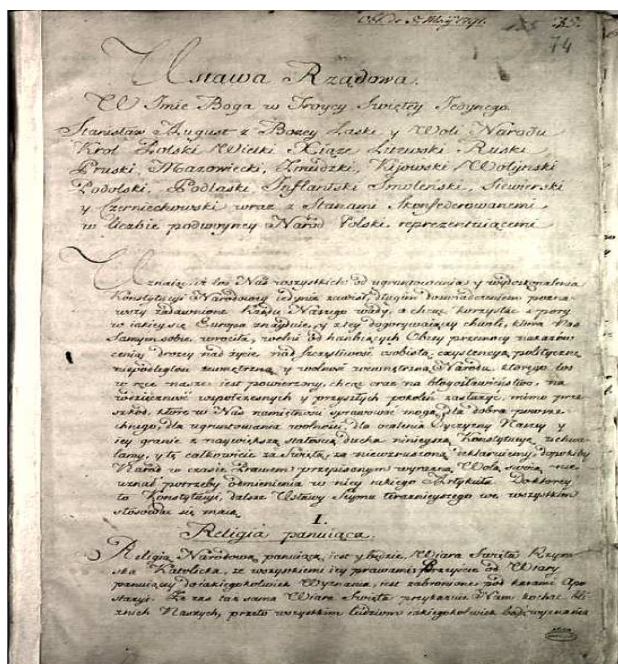 74
Ustawa Rządowa.
W Imie Boga w Troycy Swiętey Jedynego.
Stanisław August z Bozey Łaski y Woli Narodu
Krol Polski Wielki Xiąze Litewski Ruski
Pruski, Mazowiecki, Zmudzki, Kijowski Wołynski
Podolski, Podlaski Inflantski Smolenski, Siewierski
y Czerniechowski wraz z Stanami Skonfederowanemi
w liczbie podwoyney Narod Polski reprezentuiącemi
Uznaiąc, iż los Nas wszystkich od ugruntowania y wydoskonalenia
Konstytucyi Narodowey iedynie zawisł, długim doswiadczeniem pozna-
wszy zadawnione Rządu Naszego wady, a chcąc korzystać z pory
w iakiey się Europa znayduie, y z tey dogorywaiącey chwili, ktora Nas
samym sobie wrociła, wolni od hanbiących Obcey przemocy nakazow
ceniąc drozey nad zycie, nad szczęsliwosć osobistą, exystencyą polityczną
niepodległosć zewnętrzną y wolnosć wewnętrzną Narodu, ktorego los
w ręce nasze iest powierzony, chcąc oraz na błogosławienstwo, na
wdzięcznosć wspołczesnych y przyszłych pokolen zasłuzyć, mimo prze-
szkod, ktore w Nas namiętnosci sprawować mogą, dla dobra powsze-
chnego, dla ugruntowania wolnosci, dla ocalenia Oyczyzny Naszey y
iey granic z naywiększą stałoscią ducha ninieyszą Konstytucyą uchwa-
lamy, y tę całkowicie za swiętą, za niewzruszoną deklaruiemy, dopokiby
Narod w czasie Prawem przepisanym wyrazną Wolą swoią nie
uznał potrzeby odmienienia w niey iakiego Artykułu. Do ktorey
to Konstytucyi, dalsze Ustawy Seymu teraznieyszego we wszystkim
stosować się maią.
I.
Religia panuiąca.
Religią Narodową panuiącą iest y będzie Wiara Swięta Rzym-
ska Katolicka, ze wszystkiemi iey prawami. Przeyscie od Wiary
panuiącey do iakiegokolwiek Wyznania, iest zabronione pod karami Apo-
stazyi. Że zas taz sama Wiara Swięta przykazuie Nam kochać bli-
znich Naszych, przeto wszystkim ludziom iakiegokolwiek bądz wyznania